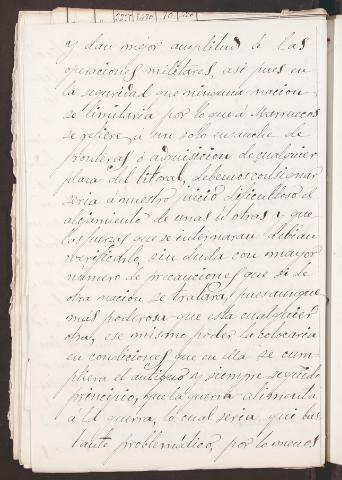 y dan mejor amplitud á las
operaciones militares, asi pues en
la seguridad que ninguna nacion
se limitaria por lo que á Marruecos
se refiere, á un solo ensanche de
fronteras ó adquisicion de cualquier
plaza del litoral, debemos consignar
seria á nuestro juicio dificultoso el
alejamiento de unas u otras y que
las fuerzas que se internaran debian
verificarlo, sin duda con mayor
número de precauciones que si de
otra nacion se tratára, pues aunque
mas poderosa que esta cualquier
otra, ese mismo poder la colocaria
en condiciones que en ella se cum-
pliera el antiguo y siempre seguido
principio, que la guerra alimenta
á la guerra, lo cual seria, qui bas
tante problemático, por lo menos